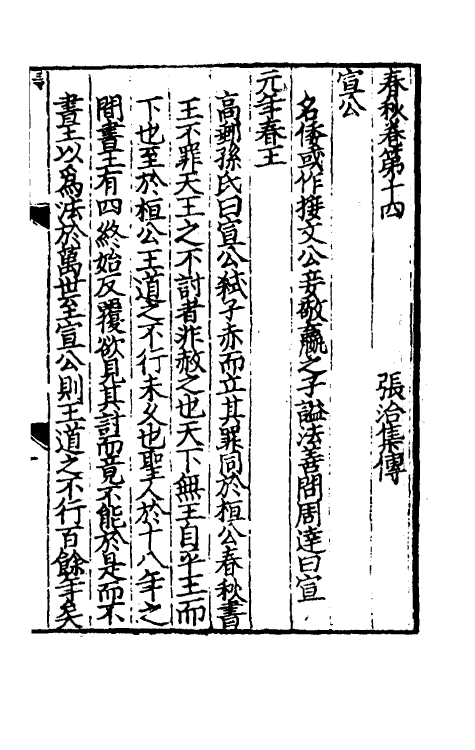 春秋卷第十四 張洽集傳
宣公
名倭或作接文公妾敬嬴之子謚法善問周達曰宣
元年春王
高郵孫氏曰宣公弒子赤而立其罪同於桓公春秋書
王不罪天王之不討者非赦之也天下無王自平王而
下也至於桓公王道之不行未久也聖人於十八年之
間書王有四終始反覆欲見其討而竟不能於是而不
書王以爲法於萬世至宣公則王道之不行百餘年矣